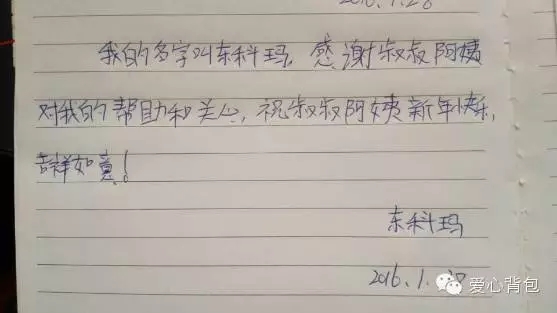 2016.1.20
我的名字叫东科玛，感谢叔叔阿姨
对我的帮助和关心，祝叔叔阿姨新年快乐，
吉祥如意！
东科玛
2016.1.20
爱心背包